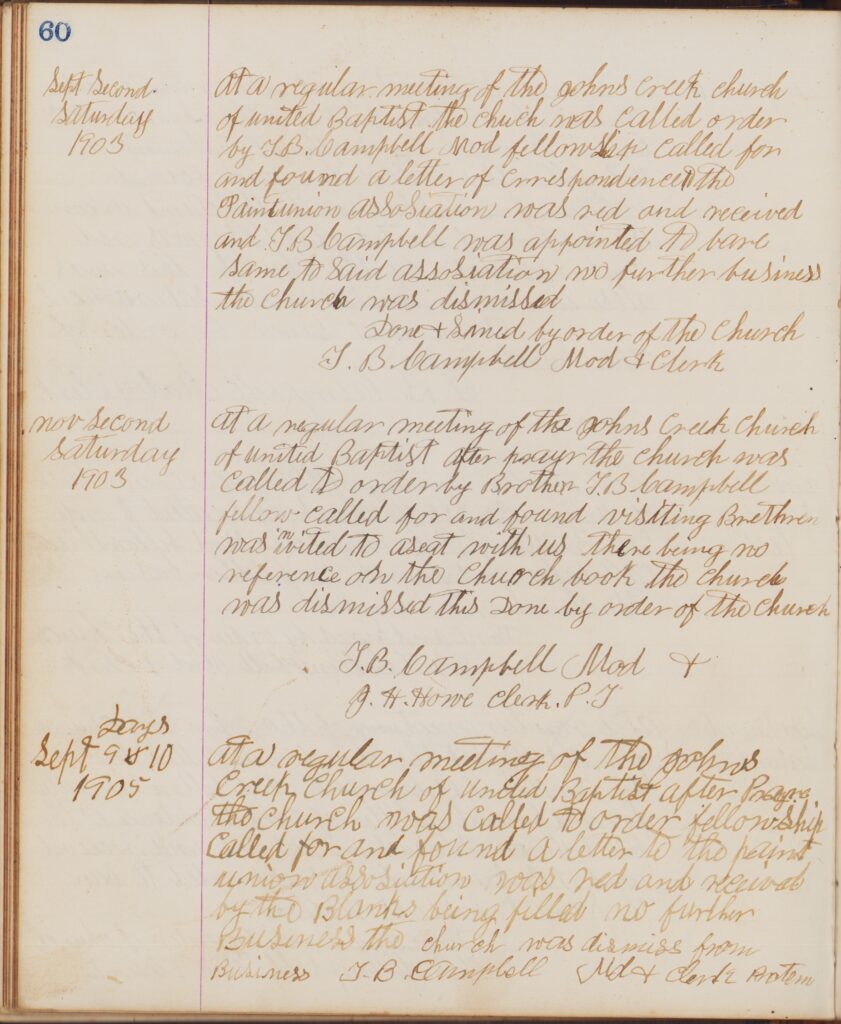 60
Sept Second
Saturday
1903
At a regular meeting of the Johns Creek church
of united Baptist the chuch was called order
by T.B. Campbell Mod fellowship called for
and found a letter of Crrespondence to the
Paintunion assosiation was red and received
and T.B Campbell was appointed to bare
same to said assosiation no further business
the Church was dismissed
Done & Sined by order of the Church
T. B. Campbell Mod & Clerk
nov Second
Saturday
1903
At a regular meeting of the Johns Creek Church
of united Baptist after prayr the Church was
called to order by Brother T.B Campbell
fellow called for and found visiting Brethren
was invited to aseat with us there being no
reference on the Church book the Church
was dismissed this Done by order of the Church
T.B. Campbell Mod &
J. H. Howe Clerk. P. T
Days
Sept 9 & 10
1905
At a regular meeting of the Johns
Creek Church of united Baptist after
the Church was called to order fellowship
Called for and found a letter to the paint
union assosiation was red and received
by the Blanks being filled no further
Business the church was dismiss from
Business T. B. Campbell Md & Clerk